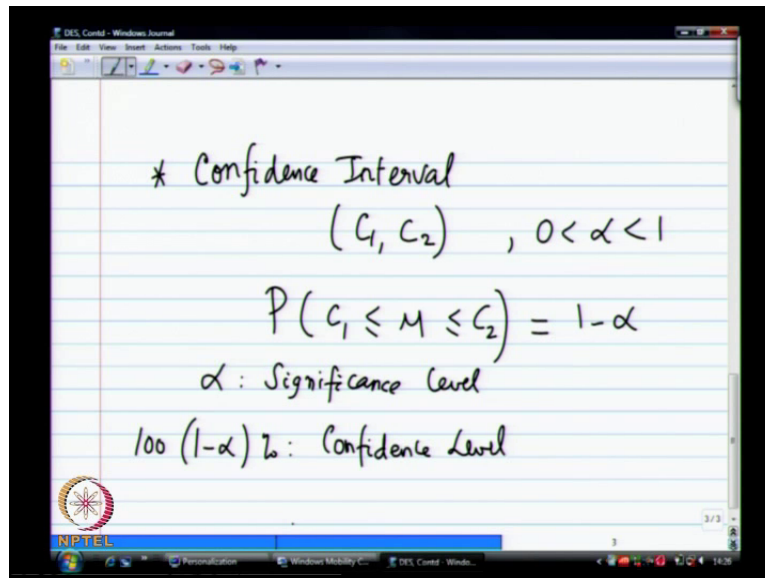 DES, Contd - Windows Journal
File Edit View Insert Actions Tools Help
* Confidence Interval
(C₁, C₂) , 0 < α < 1
P(C₁ ≤ μ ≤ C₂) = 1-α
α : Significance Level
100 (1-α) % : Confidence Level
3/3
3
NPTEL
Personalization
Windows Mobility C...
DES, Contd - Windo...
14:26